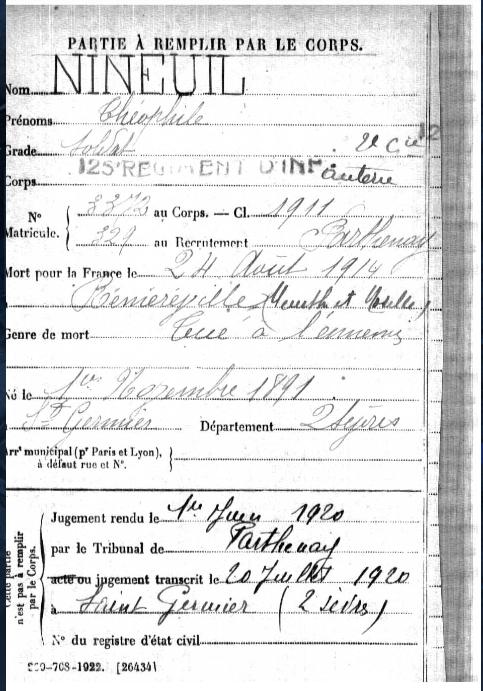 PARTIE À REMPLIR PAR LE CORPS.
Nom NINEUIL
Prénoms Théophile
Grade Soldat 2e Cie 12
Corps 125e REGIMENT D'INFanterie
N° Matricule. 3372 au Corps. — Cl. 1911
329 au Recrutement Parthenay
Mort pour la France le 24 Août 1914
(Meurthe et Moselle)
Genre de mort Tué à l'ennemi
Né le 1er Novembre 1891
St Germier Département 2 Sèvres
Arrt municipal (pr Paris et Lyon), à défaut rue et N°.
Cette partie n'est pas à remplir par le Corps.
Jugement rendu le 1er Juin 1920
par le Tribunal de Parthenay
acte ou jugement transcrit le 20 Juillet 1920
à Saint Germier (2 sèvres)
N° du registre d'état civil
-708-1922. [26434]